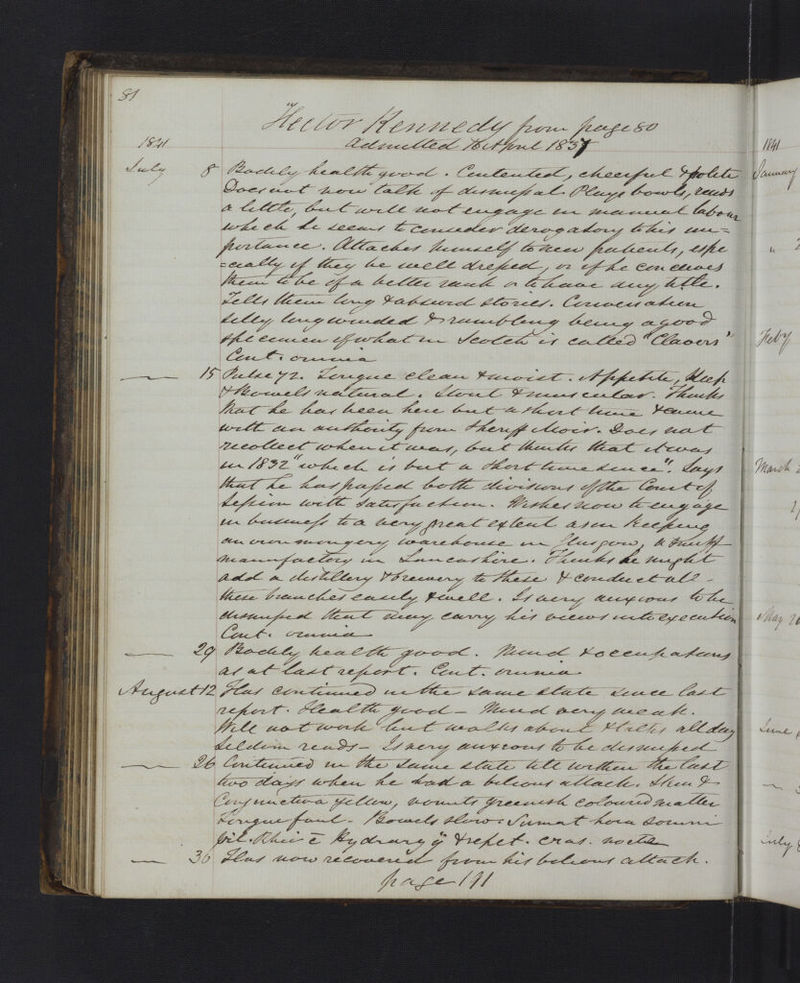 81
Hector Kennedy from page 80
1841 admitted 16 April 1837
July 8 Bodily health good. Contented, cheerful & polite
Does not now talk of dismissal. Plays bowls, reads
a little, but will not engage in manual labour
which he seems to consider derogatory to his im=
portance. Attaches himself to new patients, espe
=cially if they be well dressed, or if he conceives
them to be of a better rank or to have any title.
Tells them long & absurd stories. Conversation
silly longwinded & rambling being a good
specimen of what in Scotch is called "Clavers"
Cont. omnia
— 15 Pulse 72. Tongue clean & moist. Appetite, Sleep
& Bowels natural. Stout & muscular. Thinks
that he has been here but a short time & came
with an authority from Sheriff Moir. Does not
recollect when it was, but thinks that it was
in 1832 "which is but a short time since". Says
that he has passed both divisions of the Court of
Session with satisfaction. Wishes now to engage
in business to a very great extent as in keeping
an ironmongery warehouse in Glasgow, a snuff
manufactory in Lancashire. Thinks he might
add a distillery & brewery to these & conduct all
these branches easily & well. Is very anxious to be
dismissed that may carry his views into execution
Cont. omnia
— 29 Bodily health good. Mind & occupations
as at last report. Cont. omnia
August 12 Has continued in the same state since last
report. Health good — Mind very weak.
Will not work but walks about & talks all day
Seldom reads — Is very anxious to be dismissed
— 26 Continued in the same state till within the last
two days when he had a bilious attack. Skin &
Conjunctiva yellow, vomits greenish coloured matter
Tongue foul. Bowels slow. Sumat hora somni
pil. Rhei c̄ Hydrarg ij & repet. cras. nocte
— 30 Has now recovered from his bilious attack.
page 191
1841
January
"
Feby
March
May 20
June
July